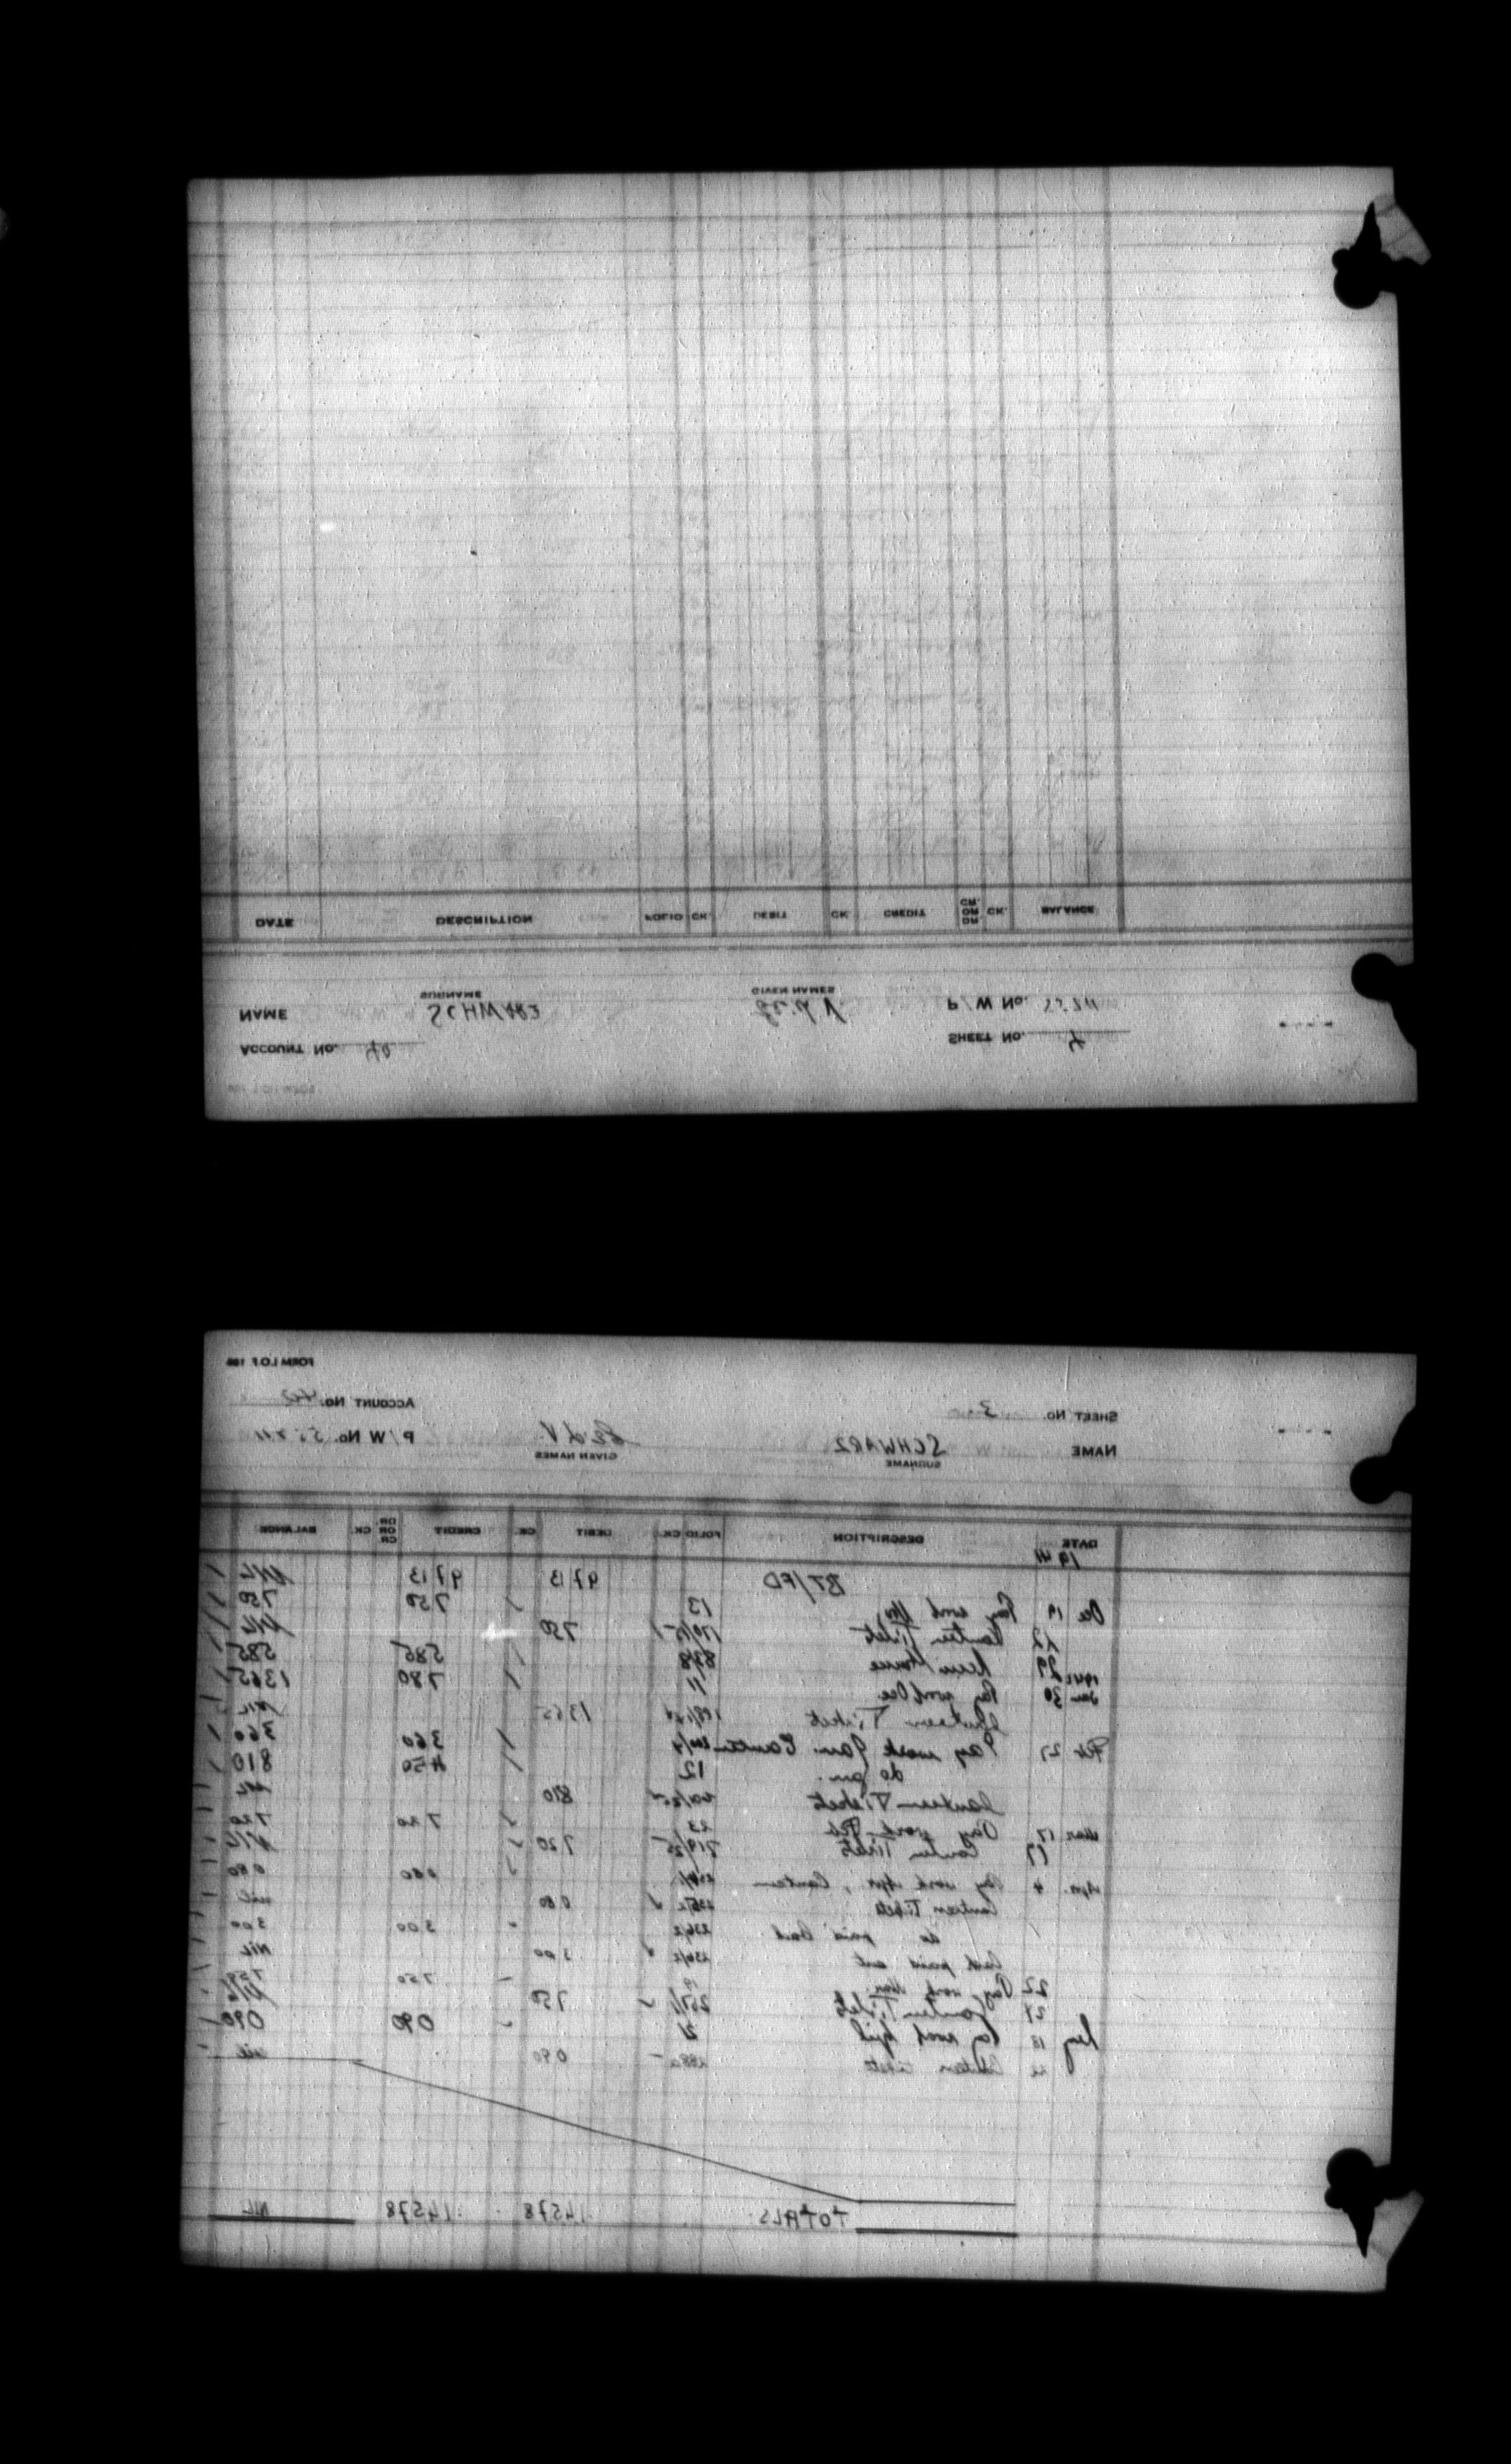 DATE DESCRIPTION FOLIO CK. DEBIT CK. CREDIT CR. OR DR. CK. BALANCE
NAME SCHWARZ P/W No.
SURNAME GIVEN NAMES
ACCOUNT No. 40 SHEET No. 4
FORM I.O.F. 106
ACCOUNT No. 40 SHEET No. 3
P/W No. NAME SCHWARZ
GIVEN NAMES SURNAME
DATE DESCRIPTION FOLIO CK. DEBIT CK. CREDIT DR. OR CR. CK. BALANCE
1941
BT/FD 97 13 97 13 NIL
Dec 19 Pay work Nov. 13 7 50 7 50
22 Canteen Tickets 170/15 7 50 NIL
29 5 85 5 85
1942
Jan 30 Pay work Dec 11 7 80 13 65
Canteen Tickets 13 65 NIL
Feb 27 Pay work Jan. Canteen 3 60 3 60
do Jan. 12 4 50 8 10
Canteen Tickets 8 10 NIL
Mar 17 Pay work Feb 23 7 20 7 20
17 Canteen Tickets 219/25 7 20 NIL
Apr. 4 Pay work Apr, Canteen 0 80 0 80
Canteen Tickets 0 80 nil
do paid back 236/2 3 00 3 00
Cash paid out 236/2 3 00 NIL
22 Pay work Mar. 19 7 50 7 50
27 Canteen Tickets 257/1 7 50 NIL
18 Pay work April 21 0 90 0 90
Canteen tickets 0 90 nil
TOTALS 145 78 145 78 NIL